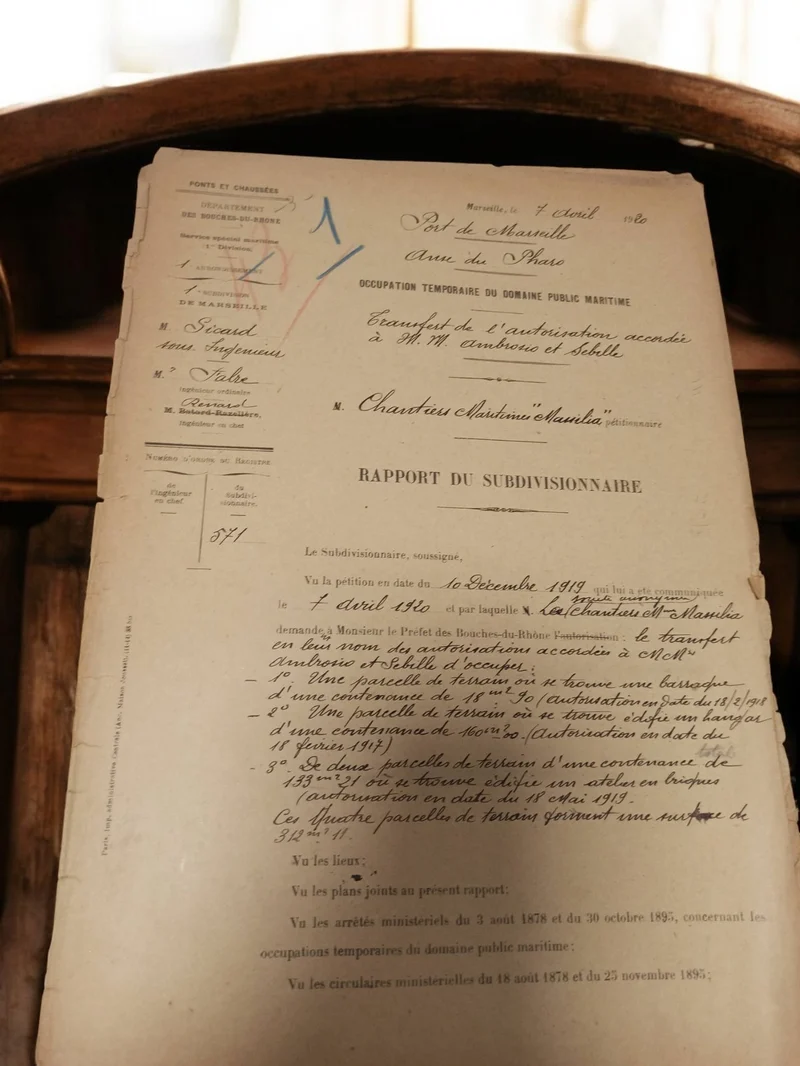 PONTS ET CHAUSSÉES
DÉPARTEMENT
DES BOUCHES-DU-RHÔNE
Service spécial maritime
1re Division
1 ARRONDISSEMENT
1 SUBDIVISION
DE MARSEILLE
M. Sicard
sous Ingénieur
M. Fabre
ingénieur ordinaire
Renard
M. Batard-Razelière,
ingénieur en chef
NUMÉRO D'ORDRE DU REGISTRE
de l'ingénieur en chef
du Subdivisionnaire.
571
1
Marseille, le 7 Avril 1920
Port de Marseille
Anse du Pharo
OCCUPATION TEMPORAIRE DU DOMAINE PUBLIC MARITIME
Transfert de l'autorisation accordée
à M.M. Ambrosio et Sebelle
M. Chantiers Maritimes "Massilia" pétitionnaire
RAPPORT DU SUBDIVISIONNAIRE
Le Subdivisionnaire, soussigné,
Vu la pétition en date du 10 Décembre 1919 qui lui a été communiquée
société anonyme
le 7 Avril 1920 et par laquelle M. Les Chantiers Mmes Massilia
demande à Monsieur le Préfet des Bouches-du-Rhône l'autorisation : le transfert
en leur nom des autorisations accordées à MMrs
Ambrosio et Sebelle d'occuper :
- 1º. Une parcelle de terrain où se trouve une barraque
d'une contenance de 18 m² 90 (autorisation en date du 18/2/1918
- 2º Une parcelle de terrain où se trouve édifié un hangar
d'une contenance de 160 m² 00. (Autorisation en date du
18 février 1917)
totale
- 3º. De deux parcelles de terrain d'une contenance de
133 m² 21 où se trouve édifié un atelier en briques
(autorisation en date du 18 Mai 1919.
Ces Quatre parcelles de terrain forment une surface de
312 m² 11.
Vu les lieux;
Vu les plans joints au présent rapport;
Vu les arrêtés ministériels du 3 août 1878 et du 30 octobre 1895, concernant les
occupations temporaires du domaine public maritime;
Vu les circulaires ministérielles du 18 août 1878 et du 25 novembre 1895;